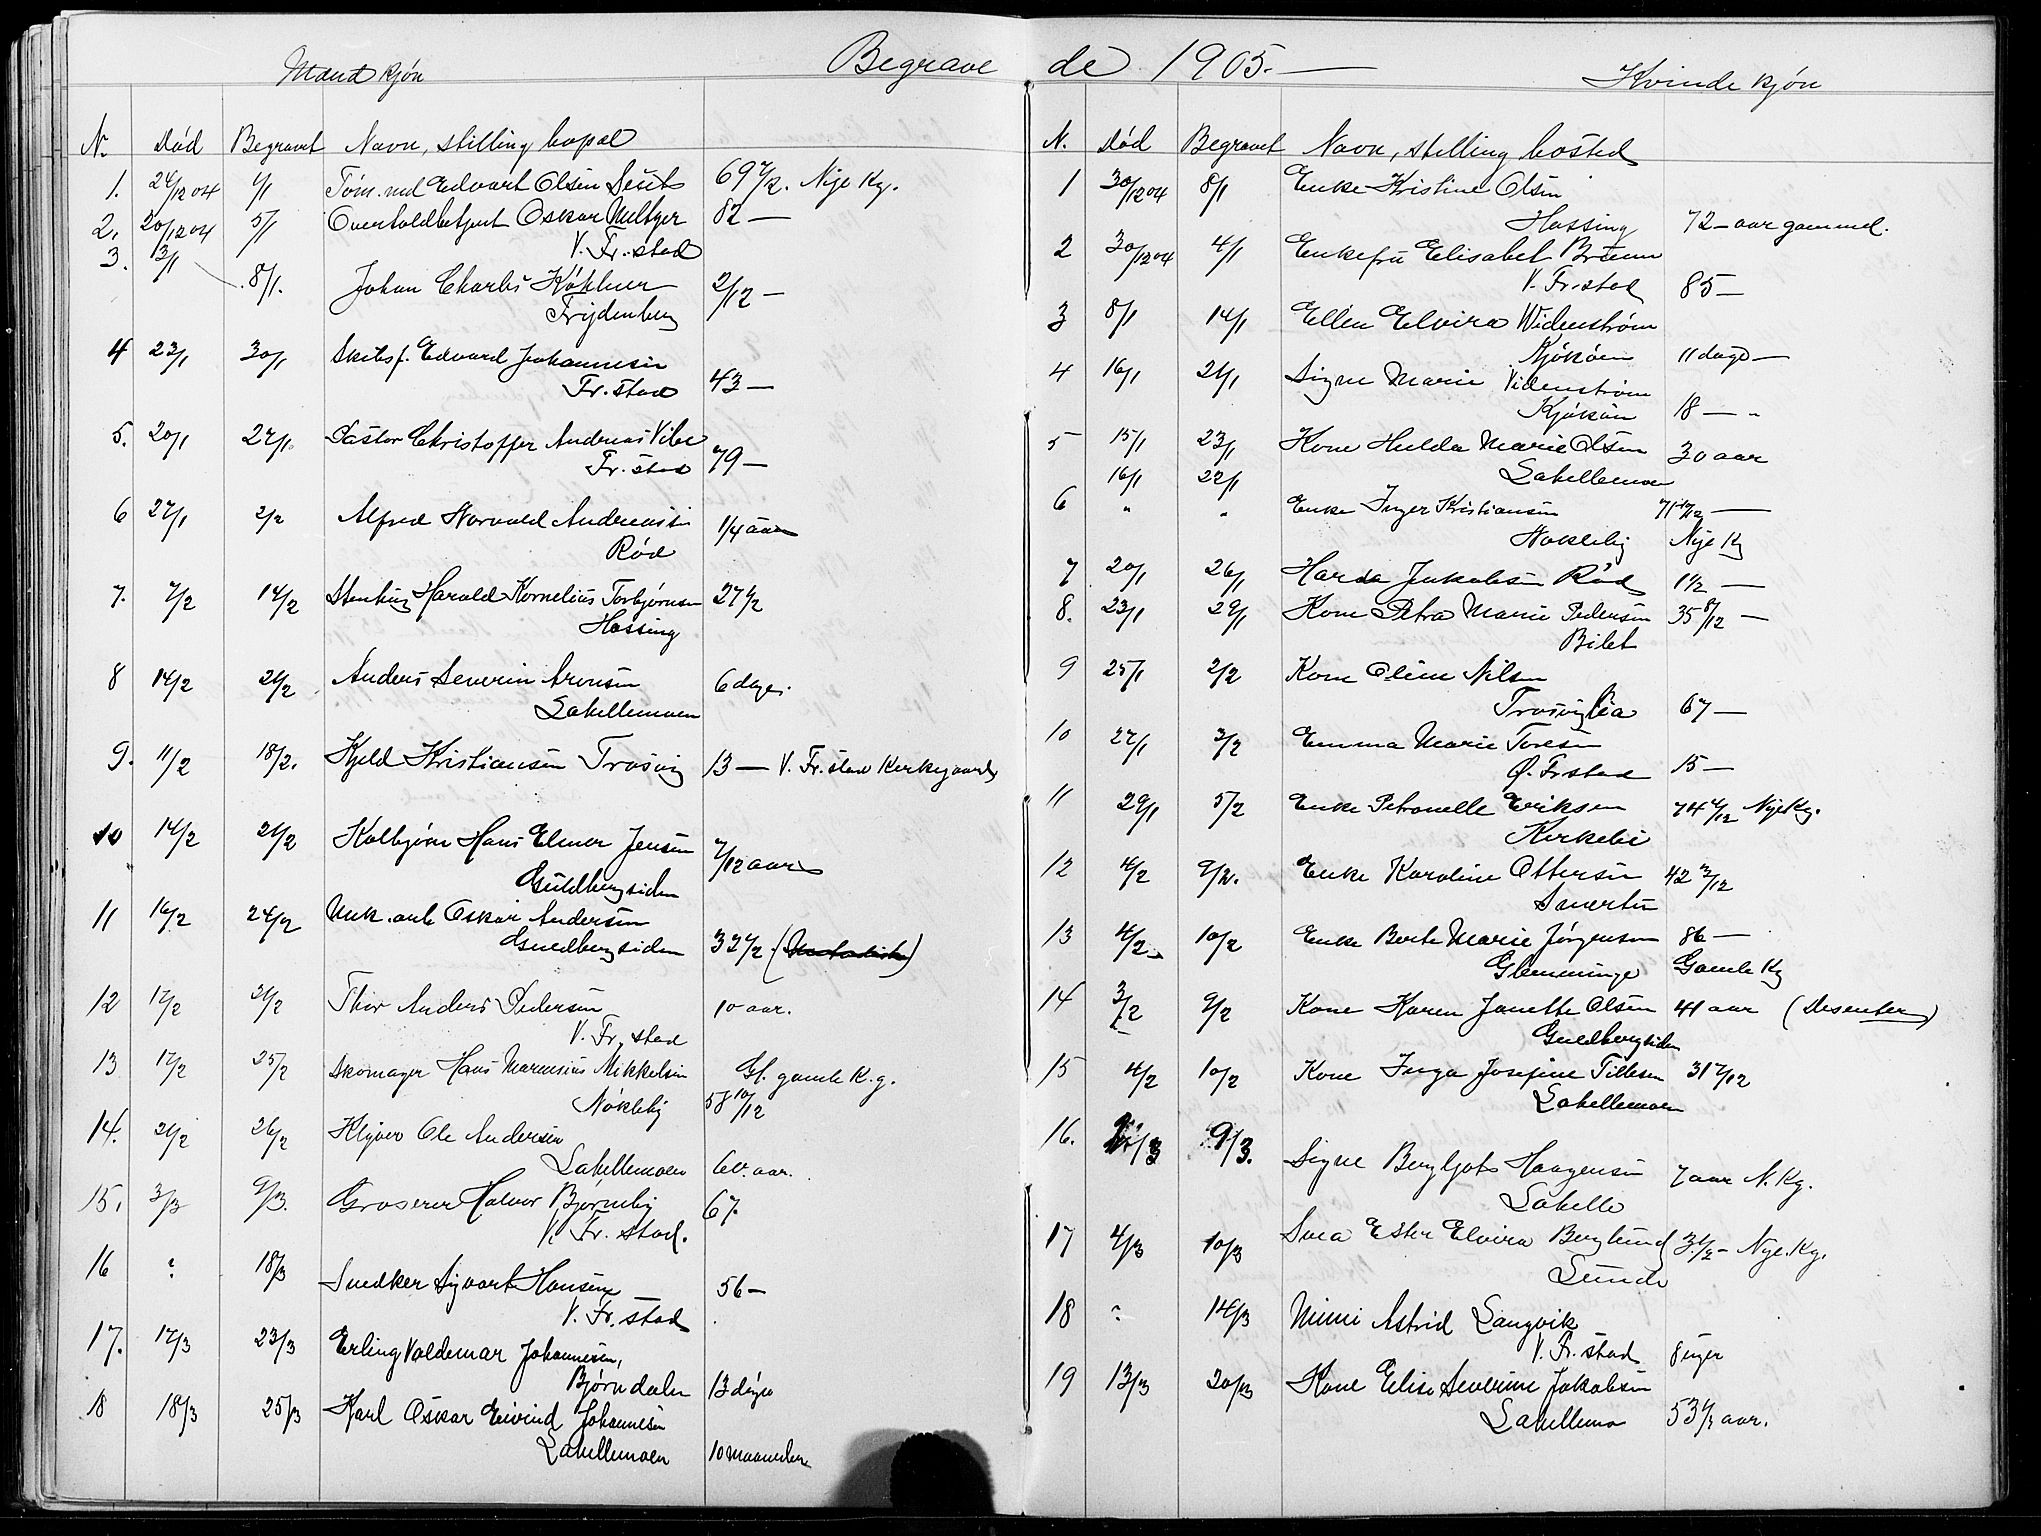 Begravede 1905.
Mandkjøn
N. Død Begravet Navn, stilling, bopæl
1. 24/12 04 1/1 Tøm.md Edvart Olsen 69 1/2. Nye Kg.
2. 20/12 04 5/1 Overtoldbetjent Oskar 82 —
V. Fr.stad
3. 13/1 8/1. Johan Charles
2/12 —
4 23/1 30/1 Skibsf. Edvard Johannesen
Fr.stad 43 —
5. 20/1 27/1 Pastor Christoffer Andreas Vibe
Fr.stad 79 —
6 27/1 2/2 Alfred Harvald Andreassen 1/4 aar
Rød
7. 7/2 14/2 Stenhug Harald Kornelius Torbjørnsen 27 1/2
Hassing
8 14/2 21/2 Anders Severin Arensen 6 dage.
Lahellemoen
9. 11/2 18/2. Kjeld Kristiansen Trosvig 13 — V. Fr.stad Kirkegaard
10 14/2 21/2 Kolbjørn Hans Elmer Jensen 7/12 aar
Guldbergsiden
11 16/2 24/2 Mek. arb Oskar Andersen
Guldbergsiden 32 1/2
12 17/2 21/2 Thor Anders Pedersen 10 aar.
V. Fr.stad
13 17/2 25/2 Skomager Hans Marensius Mikkelsen Gl. gamle K.g.
Nøkleby 58 10/12
14. 21/2 26/2 Kljver Ole Andersen
Lahellemoen 60 aar.
15. 3/3 9/3. Groserer Halvor Bjørneby 67.
V. Fr.stad.
16 ? 18/3 Snedker Sigvart Hansen 56 —
V. Fr.stad
17. 17/3 23/3 Erling Valdemar Johannesen,
Bjørndalen 13 dage
18 18/3 25/3 Karl Oskar Eivind Johannesen
Lahellemoen 10 maaneder
Kvindekjøn
N. Død Begravet Navn, stilling, bosted
1 30/12 04 8/1 Enke Kristine Olsen
Hassing 72 — aar gammel.
2 30/12 04 4/1 Enkefru Elisabet
V. Fr.stad 85 —
3 8/1 14/1 Ellen Elvira Widenstrøm
Kjøkøen 11 dage —
4 16/1 21/1 Signe Marie Videnstrøm
Kjøkøen 18 — "
5 15/1 23/1 Kone Hulda Marie Olsen 30 aar
16/1 22/1 Lahellemoen
6 " " Enke Inger Kristiansen 71 10/12 —
Nøkleby Nye Kg
7 20/1 26/1 Harda Jakobsen Rød 1 1/2 —
8. 23/1 29/1 Kone Petra Marie Pedersen 35 8/12 —
Bilet
9 25/1 2/2 Kone Oline Nilsen
Trosviglia 67 —
10 27/1 3/2 Emma Marie Toresen
Ø. Frstad 15 —
11 29/1 5/2 Enke Petronelle Eriksen 74 4/12 Nye Kg.
Kirkelie
12 4/2 9/2. Enke Karoline Ottersen 42 3/12
Smertu
13 4/2 10/2 Enke Berte Marie Jørgensen 86 —
Glemminge Gamle Kg
14 3/2 9/2 Kone Karen Janette Olsen 41 aar (Desenter)
Guldbergsiden
15 4/2 10/2 Kone Inga Josefine Tillesen 31 7/12
Lahellemoen
16. 9/3. Signe Bergljots Haagensen 7 aar N. Kg.
Lahelle
17 4/3 10/3 Svea Ester Elvira Berglund 3 1/2 — Nye. Kg.
Lunde
18 ? 14/3 Mimi Astrid Langvik
V. Fr.stad 8 uger
19 13/3 20/3 Kone Elise Severine Jakobsen
Lahellemo 53 1/2 aar.